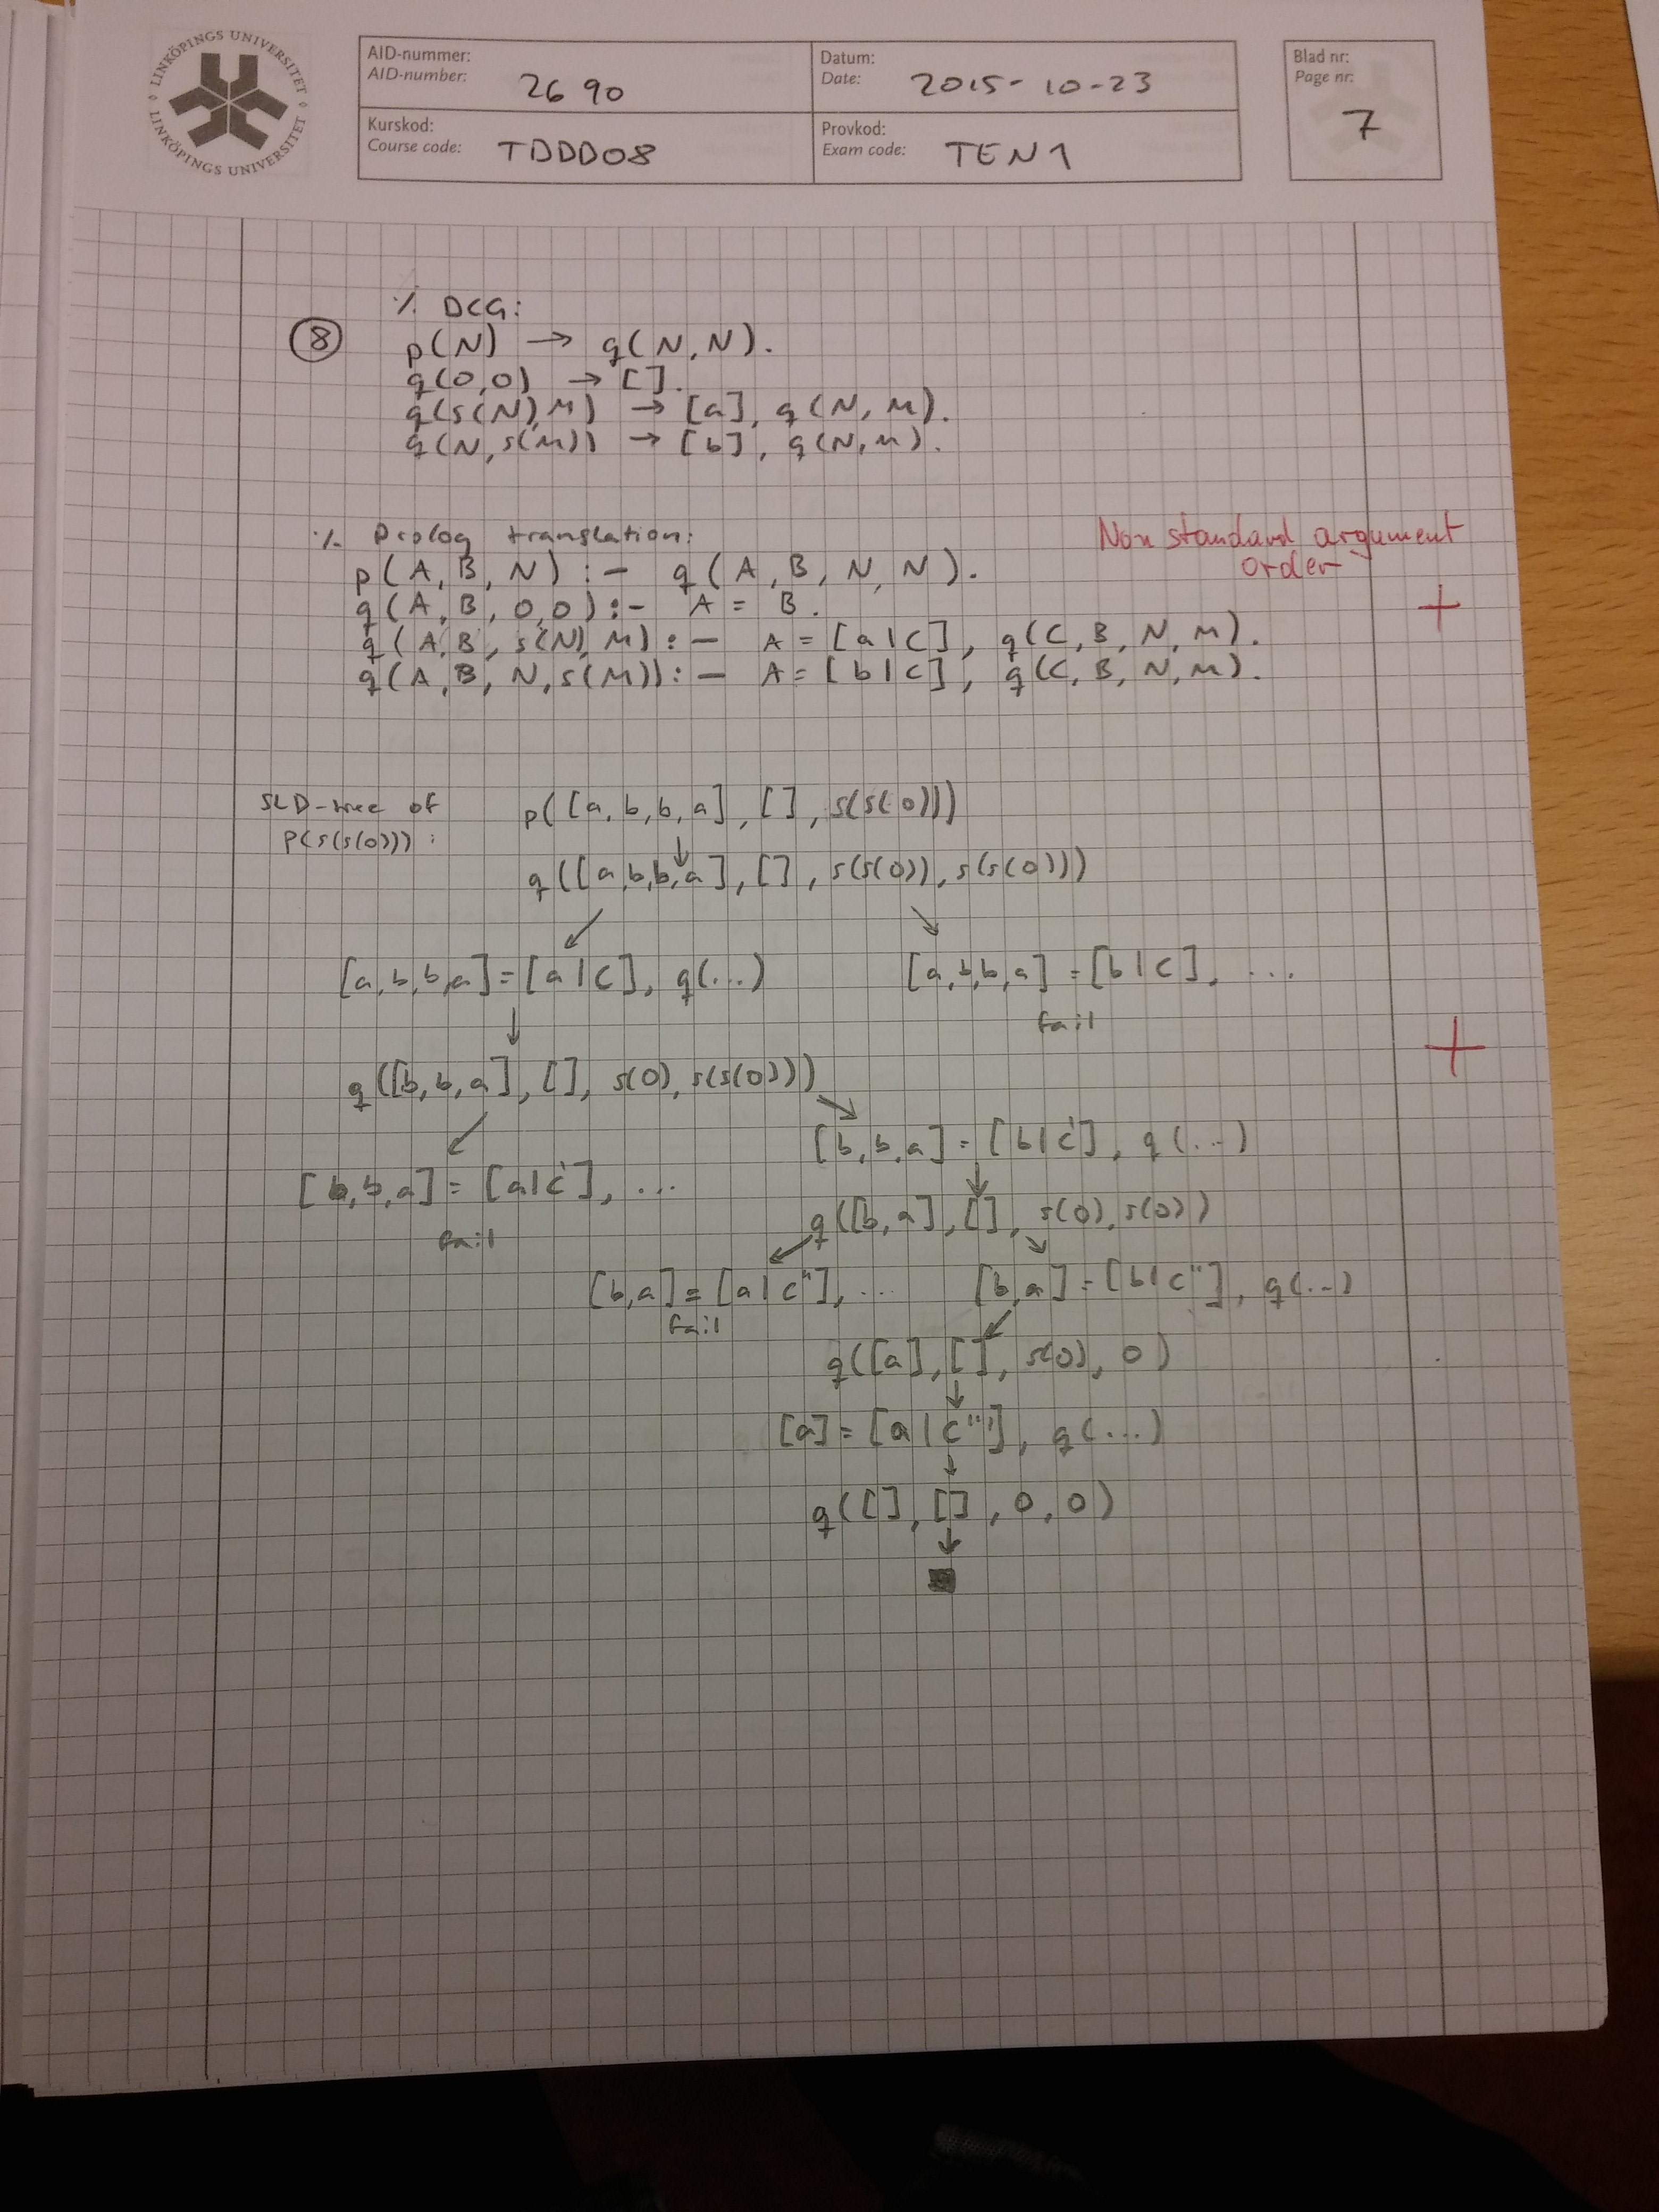 LINKÖPINGS UNIVERSITET
LINKÖPINGS UNIVERSITET
AID-nummer:
AID-number: 2690
Datum:
Date: 2015-10-23
Blad nr:
Page nr:
7
Kurskod:
Course code: TDDD08
Provkod:
Exam code: TEN1
% DCG:
8 p(N) → q(N,N).
q(0,0) → [].
q(s(N),M) → [a], q(N,M).
q(N,s(M)) → [b], q(N,M).
% Prolog translation:
Non standard argument
order
p(A,B,N) :- q(A,B,N,N).
q(A,B,0,0) :- A = B.
+
q(A,B,s(N),M) :- A=[a|C], q(C,B,N,M).
q(A,B,N,s(M)) :- A=[b|C], q(C,B,N,M).
SLD-tree of
p(s(s(0))) :
p([a,b,b,a],[],s(s(0)))
↓
q([a,b,b,a],[],s(s(0)),s(s(0)))
↙ ↘
[a,b,b,a]=[a|C], q(...) [a,b,b,a]=[b|C], ...
↓ fail
+
q([b,b,a],[],s(0),s(s(0)))
↙ ↘
[b,b,a]=[b|C'], q(...)
[b,b,a]=[a|C'], ... ↓
q([b,a],[],s(0),s(0))
fail
↙ ↘
[b,a]=[a|C''], ... [b,a]=[b|C''], q(...)
fail ↙
q([a],[],s(0),0)
↓
[a]=[a|C'''], q(...)
↓
q([],[],0,0)
↓
■